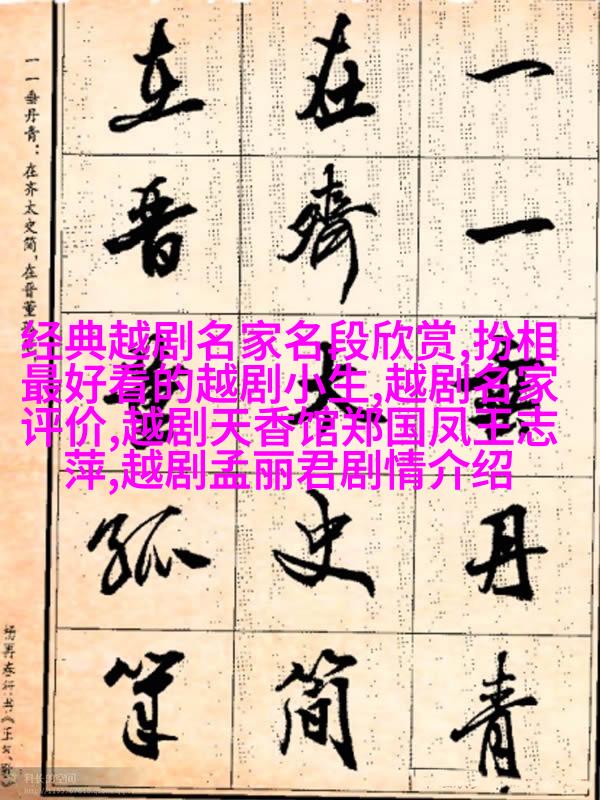 一一垂丹青
在齊太史简
在晋董孤筆
一一垂丹青：在齐太史简，在晋董
杨再春行书《正气
经典越剧名家名段欣赏,扮相
最好看的越剧小生,越剧名家
评价,越剧天香馆郑国凤王志
萍,越剧孟丽君剧情介绍
科长的空间